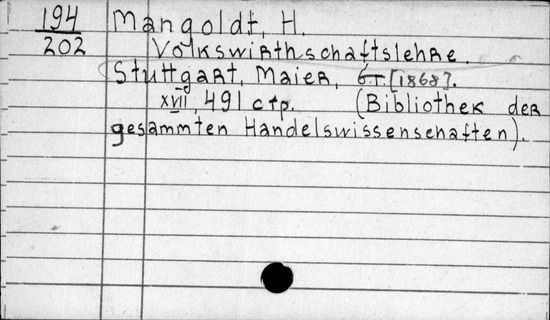 194 Mangoldt, H.
202 Volkswirthschaftslehre.
Stuttgart, Maier, [1868].
XVII, 491 стр. (Bibliothek der
gesammten Handelswissenschaften).